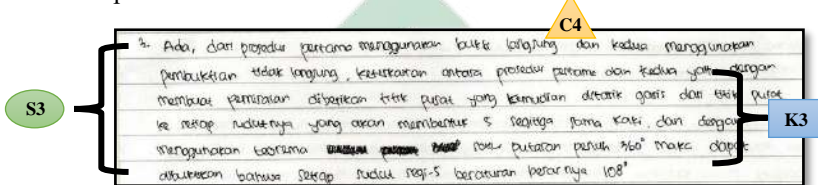 C4
3. Ada, dari prosedur pertama menggunakan bukti langsung dan kedua menggunakan
pembuktian tidak langsung, keterkaitan antara prosedur pertama dan kedua yaitu dengan
membuat pemisalan diberikan titik pusat yang kemudian ditarik garis dari titik pusat
S3
ke setiap sudutnya yang akan membentuk 5 segitiga sama kaki, dan dengan
K3
menggunakan teorema satu putaran penuh 360° maka dapat
dibuktikan bahwa setiap sudut segi-5 beraturan besarnya 108°